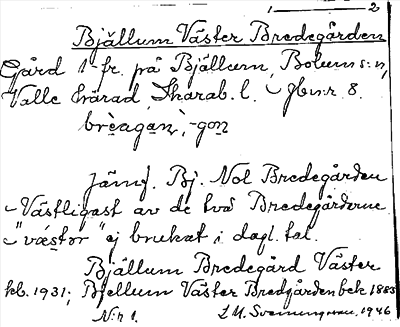 1 2
Bjällum Väster Bredegården
Gård 1 fr. på Bjällum, Bolums sn,
Valle härad, Skarab. l. Jbnr 8.
brèagan, -gon
Jämf. Bj. Nol Bredegården
Västligast av de två Bredegårderne
"væstər" ej brukat i dagl. tal.
Bjällum Bredegård Väster
keb. 1931; Bjellum Väster Bredgården bek 1885
N:r 1. L. M. 1946